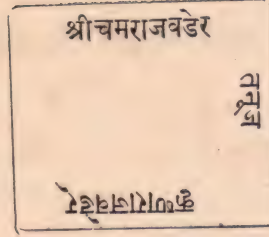 श्रीचमराजवडेर
तनूज
कृष्णराजवडेर